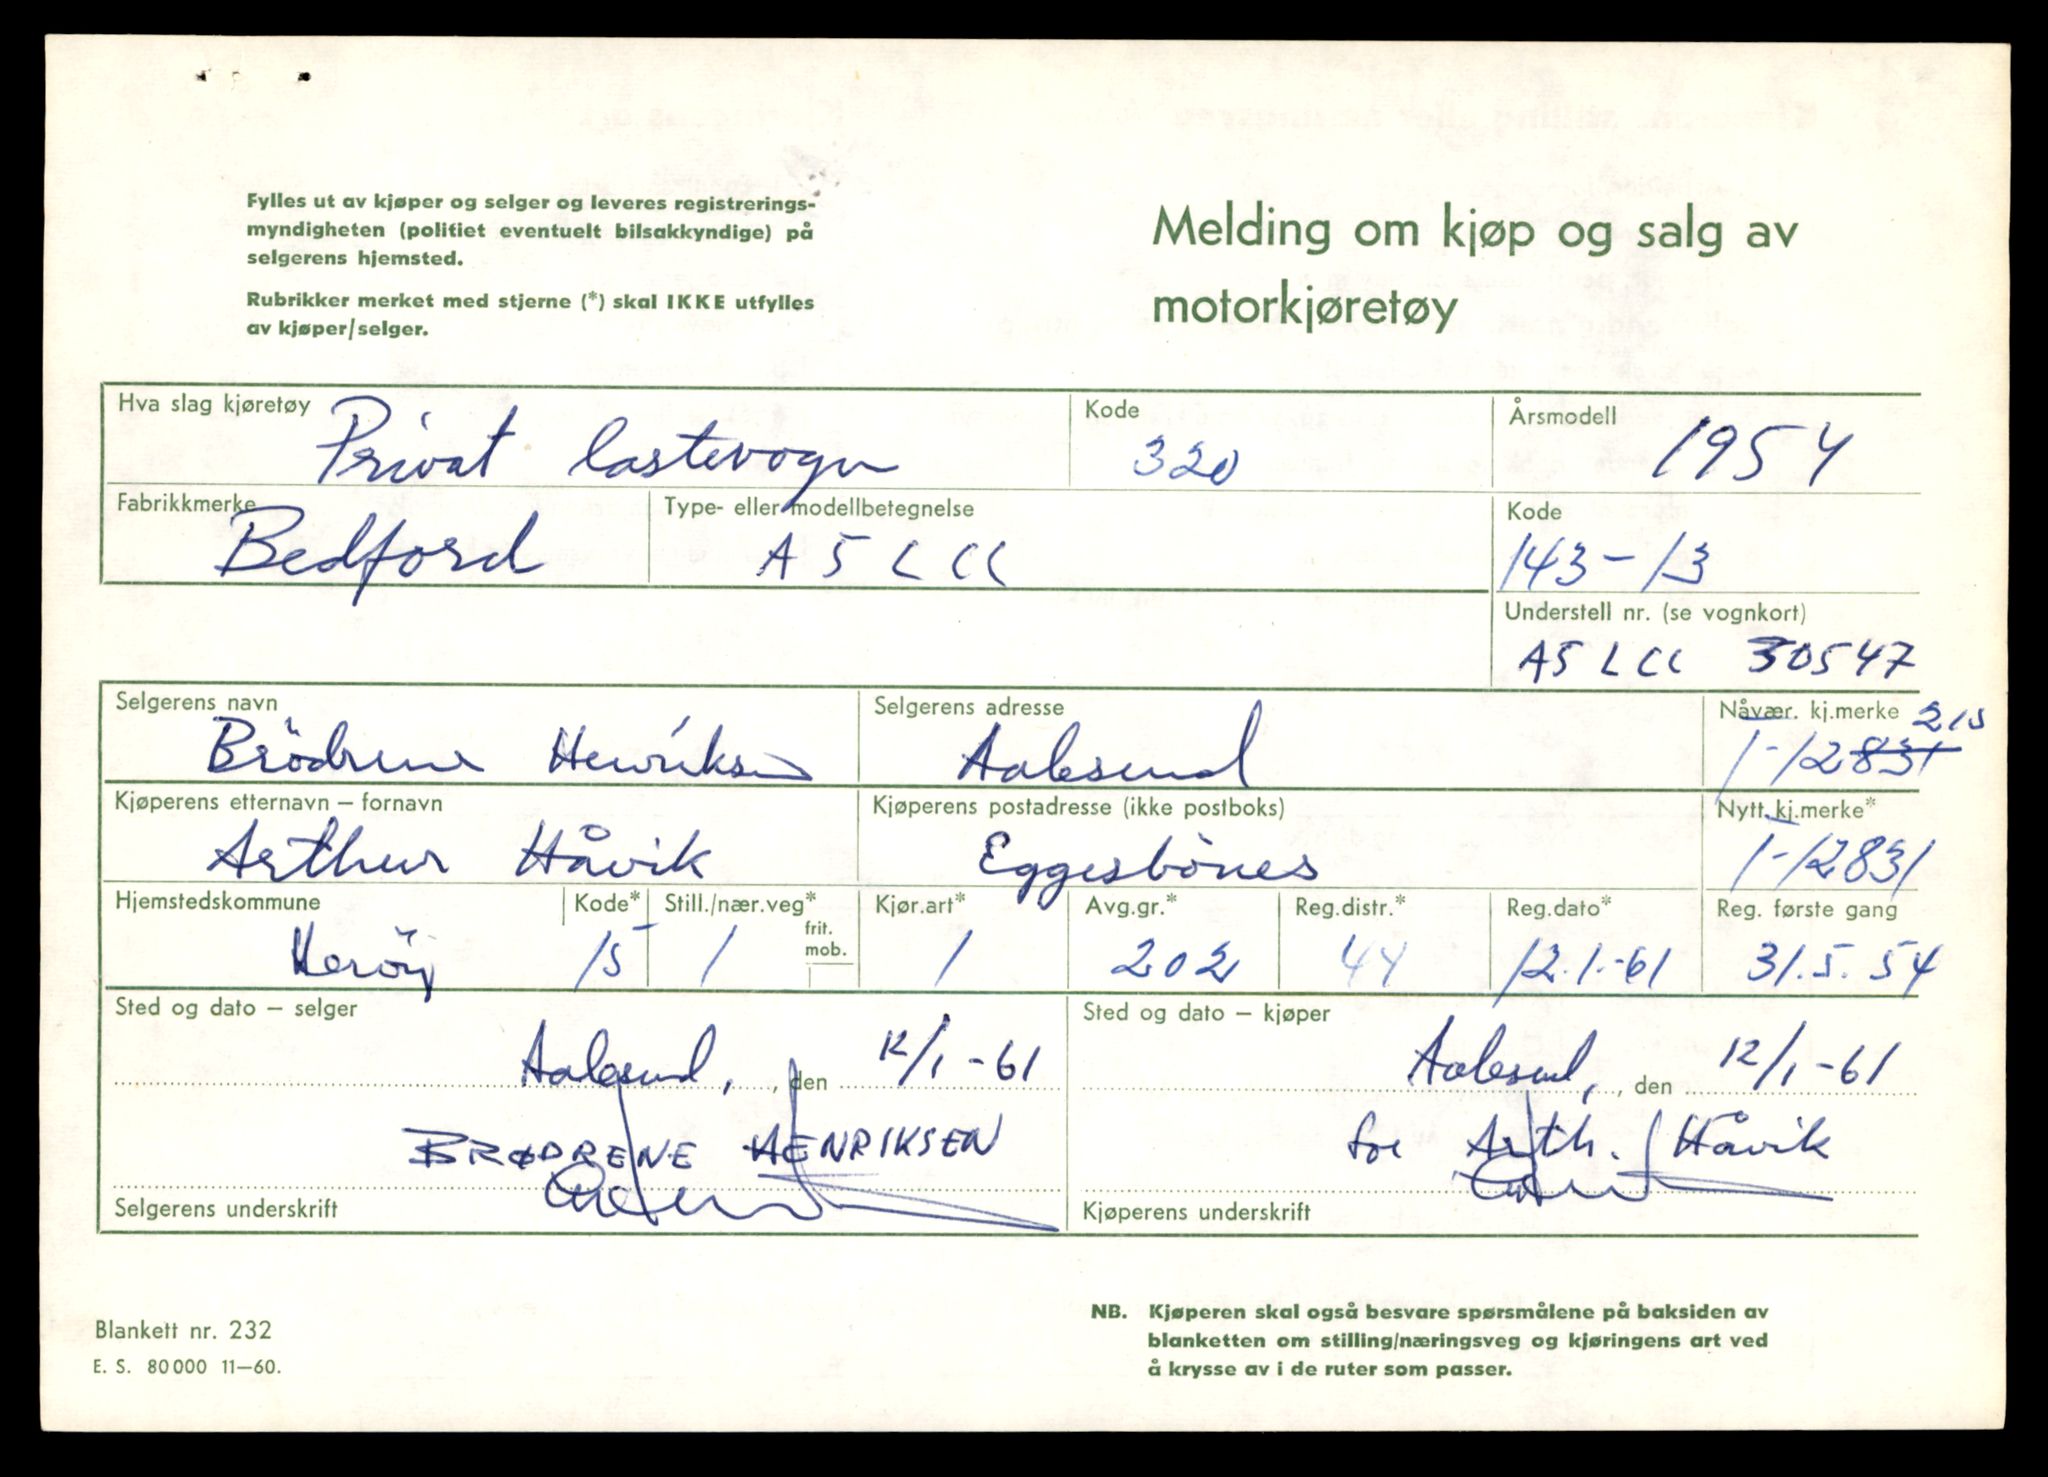 Fylles ut av kjøper og selger og leveres registrerings-
myndigheten (politiet eventuelt bilsakkyndige) på
selgerens hjemsted.
Rubrikker merket med stjerne (*) skal IKKE utfylles
av kjøper/selger.
Melding om kjøp og salg av
motorkjøretøy
Hva slag kjøretøy Privat lastevogn
Kode 320
Årsmodell 1954
Fabrikkmerke Bedford
Type- eller modellbetegnelse A5LCC
Kode 143-13
Understell nr. (se vognkort)
A5LCC 30547
Selgerens navn Brödrene Henriksen
Selgerens adresse Aalesund
Nåvær. kj.merke 215
T-12831
Kjøperens etternavn – fornavn
Arthur Håvik
Kjøperens postadresse (ikke postboks)
Eggesbönes
Nytt. kj.merke*
T-12831
Hjemstedskommune Heröy
Kode* 15
Still./nær.veg* 1
frit.
mob.
Kjør.art* 1
Avg.gr.* 202
Reg.distr.* 44
Reg.dato* 12.1.-61
Reg. første gang 31.5.54
Sted og dato – selger
Aalesund, , den 12/1-61
BRØDRENE HENRIKSEN
Selgerens underskrift
Sted og dato – kjøper
Aalesund, , den 12/1-61
for Arth. Håvik
Kjøperens underskrift
Blankett nr. 232
E. S. 80000 11—60.
NB. Kjøperen skal også besvare spørsmålene på baksiden av
blanketten om stilling/næringsveg og kjøringens art ved
å krysse av i de ruter som passer.